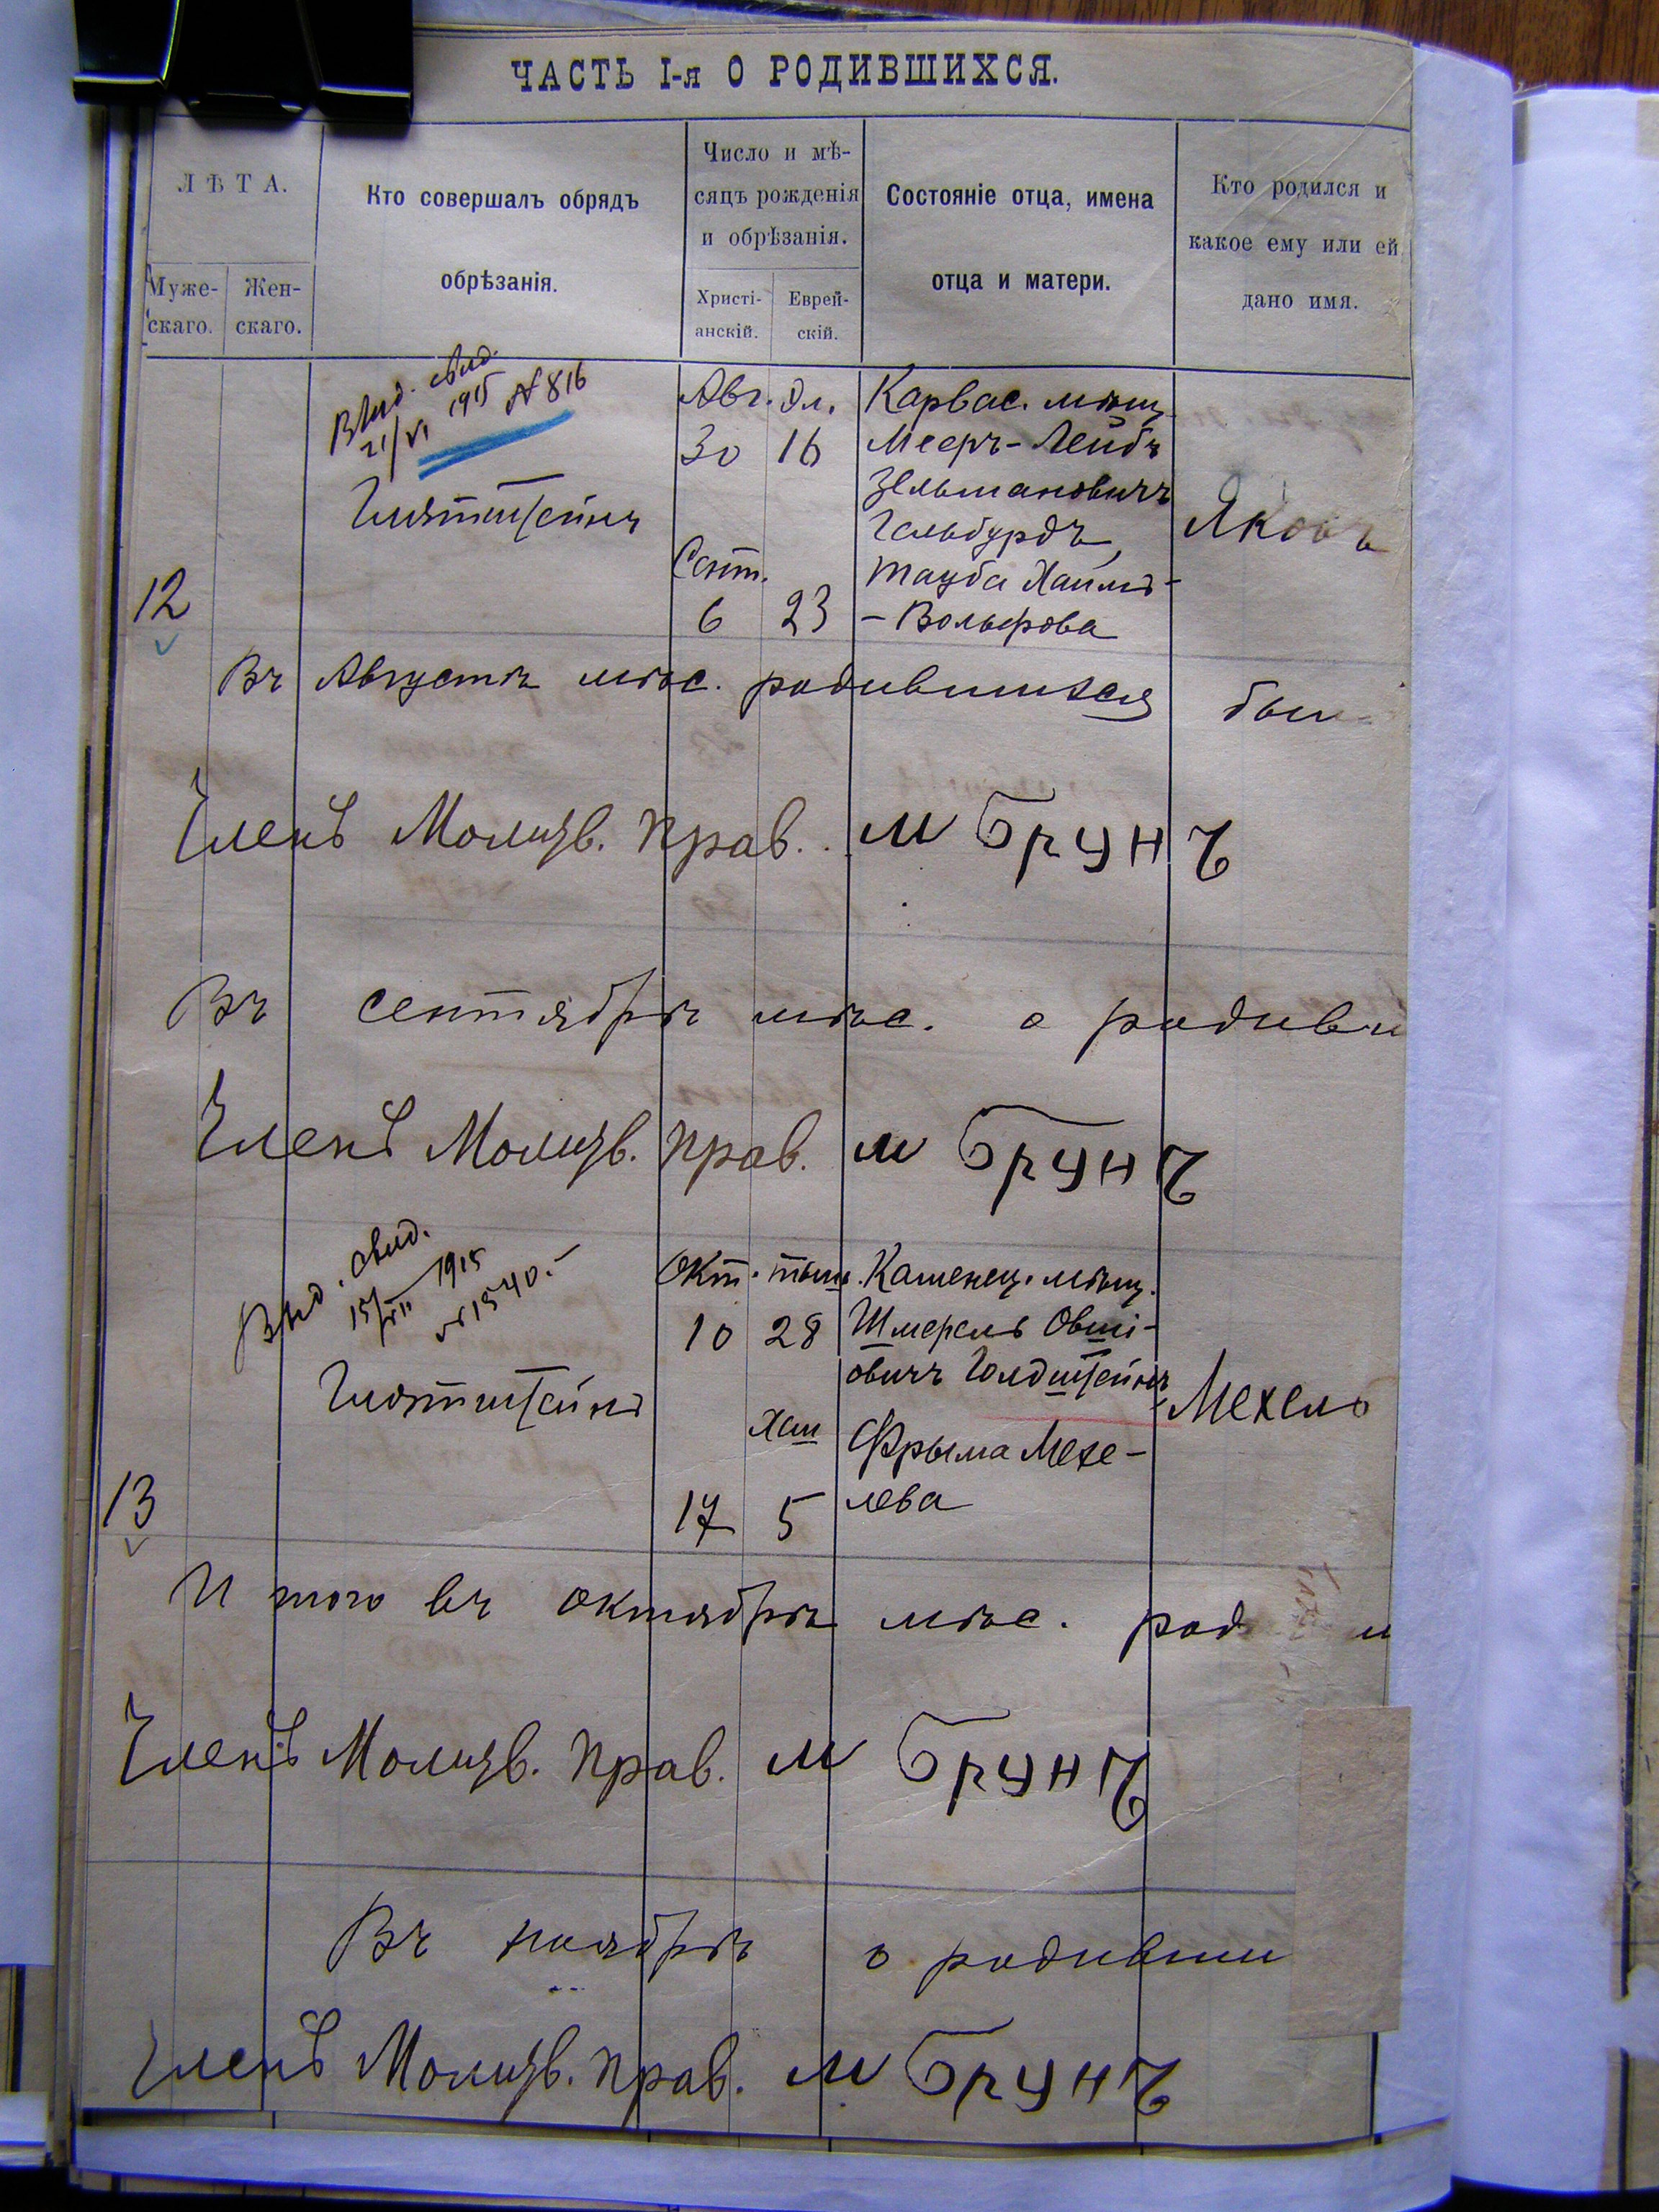 ЧАСТЬ I-я О РОДИВШИХСЯ.
ЛѢТА.
Муже-
скаго.
Жен-
скаго.
Кто совершалъ обрядъ
обрѣзанія.
Число и мѣ-
сяцъ рожденія
и обрѣзанія.
Христі-
анскій.
Еврей-
скій.
Состояніе отца, имена
отца и матери.
Кто родился и
какое ему или ей
дано имя.
12
Выд. свид.
21/VI 1915 № 816
Глютштейнъ
Авг. Эл.
30 16
Сент.
6 23
Карвас. мѣщ.
Мееръ-Лейбъ
Зельмановичъ
Гельбурдъ,
Тауба Хаимъ-
-Вольфова
Яковъ
Въ Августѣ мѣс. родившихся был
Членъ Молитв. Прав. М Брунъ
Въ сентябрѣ мѣс. о родивш
Членъ Молитв. Прав. М Брунъ
13
Выд. свид.
15/VII 1915
№ 1540.-
Глютштейнъ
Окт. тиш.
10 28
Хеш
17 5
Каменец. мѣщ.
Шмерель Овші-
овичъ Голдштейнъ
Фрыма Мехе-
лева
Мехель
Итого въ октябрѣ мѣс. род
Членъ Молитв. Прав. М Брунъ
Въ ноябрѣ о родивши
Членъ Молитв. Прав. М Брунъ